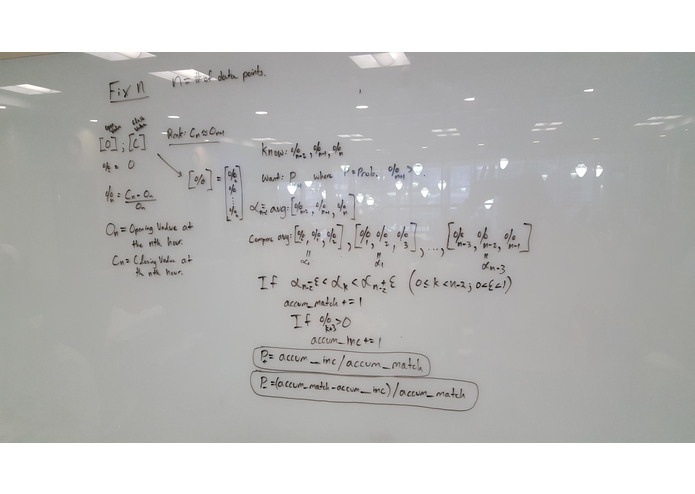 Fix n n = # of data points.
open value close value
[O] ; [C]
% = 0
%n = Cn - On / On
On = Opening Value at
the nth hour.
Cn = Closing Value at
the nth hour.
Cn ≈ On+1
[%] = [%
%
⋮
%]
Know: %n-2, %n-1, %n
Want: P where P = Prob. %n+1 > 0.
αn-2 = avg: [%n-2, %n-1, %n]
Compare avg: [%0, %1, %2], [%1, %2, %3], ..., [%n-3, %n-2, %n-1]
= α0 = α1 = αn-3
If αn-2 - ε < αk < αn-2 + ε (0 ≤ k < n-2 ; 0 < ε < 1)
accum_match += 1
If %k+3 > 0
accum_inc += 1
P+ = accum_inc / accum_match
P- = (accum_match - accum_inc) / accum_match